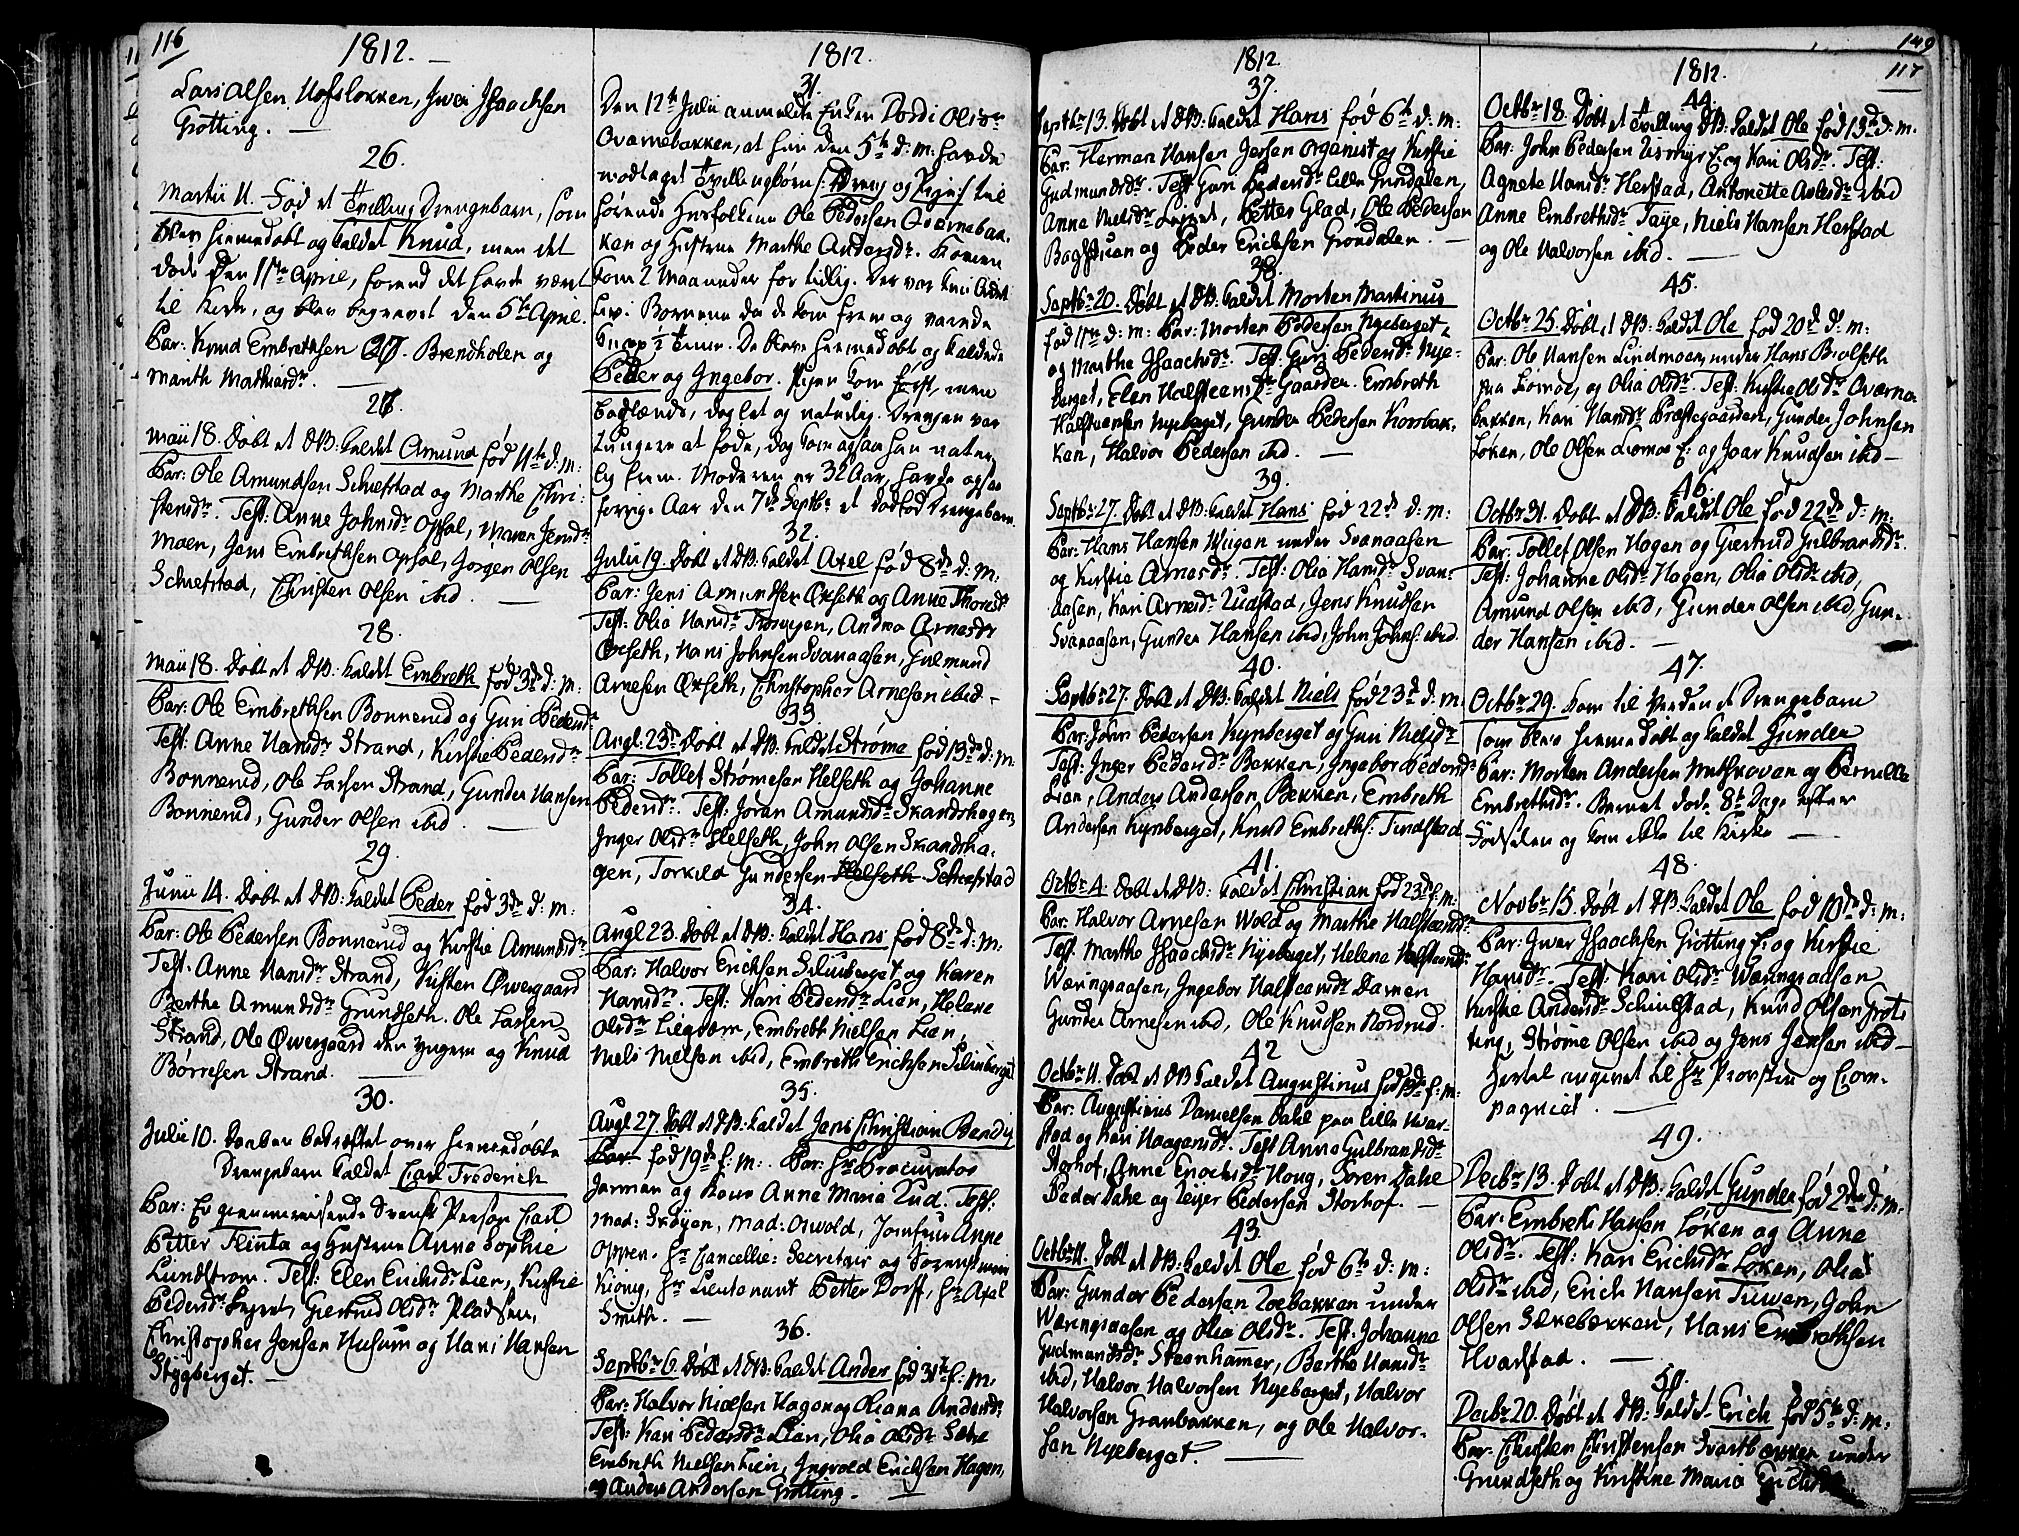 116
1812.
Lars Olsen Hofsløkken, Iwer Isaachsen
Grøtting.
26.
Martii 11. Fød et Tvilling Drengebarn, som
blev hiemedøbt og kaldet Knud, men det
døde den 1ste April, forend det havde været
til Kirke, og blev begravet den 5te April.
Par: Knud Embrethsen Brendholen og
Marith Mathiesdr.
27.
Maii 18. Døbt et DB: kaldet Amund fød 11te d: m:
Par: Ole Amundsen Schiefstad og Marthe Chri-
stensdr. Test: Anne Johnsdr Opsal, Maren Jensdr
Moen, Jens Embrethsen Opsal, Jørgen Olsen
Schiefstad, Christen Olsen ibid.
28.
Maii 18. Døbt et DB: kaldet Embreth fød 3de d: m:
Par: Ole Embrethsen Bonnerud og Guri Pedersdr
Test: Anne Hansdr Strand, Kirstie Pedersdr
Bonnerud, Ole Larsen Strand, Gunder Hansen
Bonnerud, Gunder Olsen ibid.
29.
Junii 14. Døbt et DB: kaldet Peder fød 3de d: m:
Par: Ole Pedersen Bonnerud og Kirstie Amundsdr
Test. Anne Hansdr Strand, Kirsten Øwergaard
Berthe Amundsdr Grundseth. Ole Larsen
Strand, Ole Øwergaard den yngere og Knud
Børresen Strand.
30.
Julii 10. Daaben bekræftet over hiemmedøbte
Drengebarn kaldet Carl Friderich
Par: En giennemreisende Svensk Person Carl
Petter Flinta og Hustrue Anne Sophie
Lundstrøm. Test: Elen Erichsdr Lien, Kirstie
Pedersdr Løset, Giertrud Olsdr Pladsen,
Christopher Jensen Husum og Hans Hansen
Stygberget.
1812.
31.
Den 12te Julii anmeldte Enken Dordi Olsdr
Qvarnebakken, at hun den 5te d: m: havde
modtaget Tvillingbørn /: Dreng og Pige :/ til
hørende Husfolkene Ole Pedersen Qvernebak-
ken og Hustrue Marthe Andersdr. Konen
kom 2 Maaneder for tidlig. Der var kun lidet
Liv i Børnene da de kom frem og varede
knap ½ Time. De bleve hiemedøbt og kaldede
Peder og Ingebor. Pigen kom først, men
baglænds, dog let og naturlig. Drengen var
tungere at føde, dog kom ogsaa han natur-
lig frem. Moderen er 32 Aar, havde ogsaa
forrige Aar den 7de Septbr et dødfød Drengebarn.
32.
Julii 19. Døbt et DB: kaldet Axel fød 8de d: m:
Par: Jens Amundsen Ørseth og Anne Thoresdr
Test: Olia Hansdr, Andrea Arnesdr
Ørseth, Hans Johnsen Svanaasen, Gulmund
Arnesen Ørseth, Christopher Arnesen ibid -
33.
Augl. 23de Døbt et DB: kaldet Strøme fød 13de d: m.
Par: Tollef Strømesen Helseth og Johanne
Pedersdr. Test: Joran Amundsdr Skandshagen,
Inger Olsdr Helseth, John Olsen Skandsha-
gen, Torkild Gundersen Helseth Schiefstad
34.
Augl 23. Døbt et DB: kaldet Hans fød 8de d: m:
Par: Halvor Erichsen Siliuberget og Karen
Hansdr. Test: Kari Pedersdr Lien, Helene
Olsdr, Embreth Nielsen Lien,
Niels Nielsen ibid, Embreth Erichsen Siliuberget
35.
Augl 27. Døbt et DB: kaldet Jens Christian Bendix
Par fød 19de f: m. Par: Hr Procurator
Jorman og Kone Anne Maria Lud. Test:
Mad: Skøyen, Mad: Oswold, Jomfrue Anne
Oppen. Hr Cancellie: Secretair og Sorenskriver
Kiønig, Hr Lieutenant Petter Dorff, Hr Axel
Smith.
36.
Septbr 6. Døbt et DB: kaldet Ander fød 31te f: m.
Par: Halvor Nielsen Hagen og Oliana Andersdr
Test: Kari Pedersdr Lien, Olia Olsdr Sætre
Embreth Nielsen Lien, Ingvold Erichsen Hagen,
og Anders Andersen Grøtting.
1812
37.
Septbr 13. Døbt et DB: kaldet Hans fød 6te d: m:
Par: Herman Hansen Jersen Organist og Kirstie
Gudmundsdr. Test: Guri Pedersdr Lille Grøndalen,
Anne Nielsdr Løset, Petter Glad, Ole Pedersen
Bagstuen og Peder Erichsen Grøndalen.
38.
Septbr 20. Døbt et DB: kaldet Morten Martinus
fød 11te d: m: Par: Morten Pedersen Nyeberget
og Marthe Isaachsdr. Test: Guri Pedersdr Nye-
berget, Elen Halfsteensdr Gaarden. Embreth
Halfsteensen Nyeberget, Gunder Pedersen Korsbak-
ken, Halvor Pedersen ibid.
39.
Septbr 27. Døbt et DB: kaldet Hans fød 22de d: m:
Par: Hans Hansen Wigen under Svanaasen
og Kirstie Arnesdr. Test: Olia Hansdr Svan-
aasen, Kari Arnesdr Rudstad, Jens Knudsen
Svanaasen, Gunder Hansen ibid, John Johns: ibid.
40.
Septbr 27. Døbt et DB: kaldet Niels fød 23de d: m.
Par: John Pedersen Kynberget og Guri Nielsdr
Test: Inger Pedersdr Bekken, Ingebor Pedersdr
Lien, Anders Andersen Bekken, Embreth
Andersen Kynberget, Knud Embreths: Tundstad
41.
Octbr 4. Døbt et DB: kaldet Christian fød 23de f: m.
Par: Halvor Arnesen Wold og Marthe Halfsteensdr
Test: Marthe Isaachsdr Nyeberget, Helene Halfsteensdr
Wæringsaasen, Ingebor Halfsteensdr Dammen
Gunder Arnesen ibid, Ole Knudsen Nordrud.
42
Octbr 11. Døbt et DB kaldet Augustinus fød 13de f: m:
Par: Augustinus Danielsen Dahl paa Lille Hvar-
stad og Kari Haagensdr. Test Anne Gulbrandsdr
Storhof, Anne Enochsdr Houg, Søren Dahl
Peder Dahl og Lasse Pedersen Storhof.
43.
Octbr 11. Døbt et DB: kaldet Ole fød 6te d: m:
Par: Gunder Pedersen Loebakken under
Wæringsaasen og Olia Olsdr. Test: Johanne
Gudmundsdr Steenhammer, Berthe Hansdr
ibid, Halvor Halvorsen Nyeberget, Halvor
Halvorsen Granbakken, og Ole Halvor-
sen Nyeberget.
149
117
1812.
44.
Octbr 18. Døbt et Tvilling DB: kaldet Ole fød 13de d: m.
Par: John Pedersen Løsmyr E: og Kari Olsdr. Test:
Agnete Hansdr Herstad, Antonette Axelsdr ibid
Anne Embrethsdr Teige, Niels Hansen Herstad
og Ole Halvorsen ibid.
45.
Octbr 25. Døbt et DB: kaldet Ole fød 20de d: m:
Par: Ole Hansen Lindmoen, under Hans Biølseth
fra Lømoe, og Olia Olsdr. Test: Kirstie Olsdr Qverne-
bakken, Kari Hansdr Præstegaarden, Gunder Johnsen
Løken, Ole Olsen Lømoe E: og Joar Knudsen ibid -
46.
Octbr 31. Døbt et DB: kaldet Ole fød 22de d: m:
Par: Tollef Olsen Hagen og Giertrud Gulbrandsdr.
Test: Johanne Olsdr Hagen, Olia Olsdr ibid,
Amund Olsen ibid, Gunder Olsen ibid, Gun-
der Hansen ibid.
47.
Octbr 29. Kom til Verden et Drengebarn
som blev hiemmedøbt og kaldet Gunder
Par: Morten Andersen Muthkoven og Pernelle
Embrethsdr. Barnet døde 8te Dage efter
Fødselen og kom ikke til Kirke
48.
Novbr 15. Døbt et DB: kaldet Ole fød 10de d: m:
Par: Iwer Isaachsen Grøtting E: og Kirstie
Hansdr. Test: Kari Olsdr Wæringsaasen
Kirstie Andersdr Schiefstad, Knud Olsen Grøt-
ting, Strøme Olsen ibid og Jens Jensen ibid -
Hertil angivet til Hr Provsten og Com-
pagniet.
49.
Decbr 13. Døbt et DB: kaldet Gunder fød 2den d: m.
Par: Embreth Hansen Løken og Anne
Olsdr. Test: Kari Erichsdr Løken, Olia
Olsdr ibid, Erich Hansen Tuwen, John
Olsen Sæterbekken, Hans Embrethsen
Hvarstad.
50.
Decbr 20. Døbt et DB: kaldet Erich fød 5te d: m.
Par: Christen Christensen Svartbekken under
Grundseth og Kirstine Maria Erichsdr